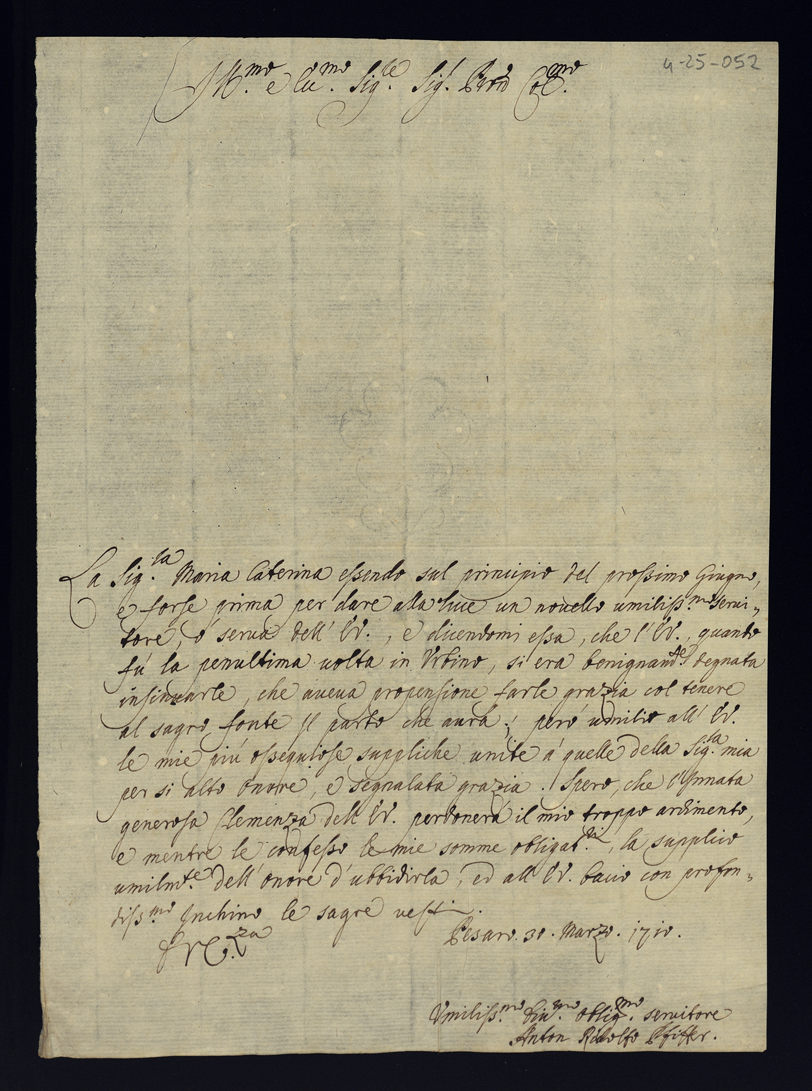 4-25-052
Ill.mo e Rev.mo Sig.re Sig.r Pron Col.mo
La Sig.ra Maria Caterina essendo sul principio del prossimo Giugno,
e forse prima per dare alla luce un novello umiliss.mo servi=
tore, ò serva dell' EV., e dicendomi essa, che l'EV., quando
fù la penultima volta in Urbino, si era benignam.te degnata
insinuarle, che aveva propensione farle grazia col tenere
al sagro fonte Il parto che avrà; però umilio all' EV.
le mie più ossequiose suppliche unite à quelle della Sig.ra mia
per si alto onore, e segnalata grazia. Spero, che l'Innata
generosa Clemenza dell' EV. perdonerà il mio troppo ardimento,
e mentre le confesso le mie somme obligat.ni, la supplico
umilm.te dell'onore d'ubbidirla, ed all' EV. bacio con profon=
diss.mo Inchino le sagre vesti.
Pesaro. 30. Marzo. 1710.
Umiliss.mo Div.mo Oblig.mo servitore
Anton Ridolfo Pfiffer.